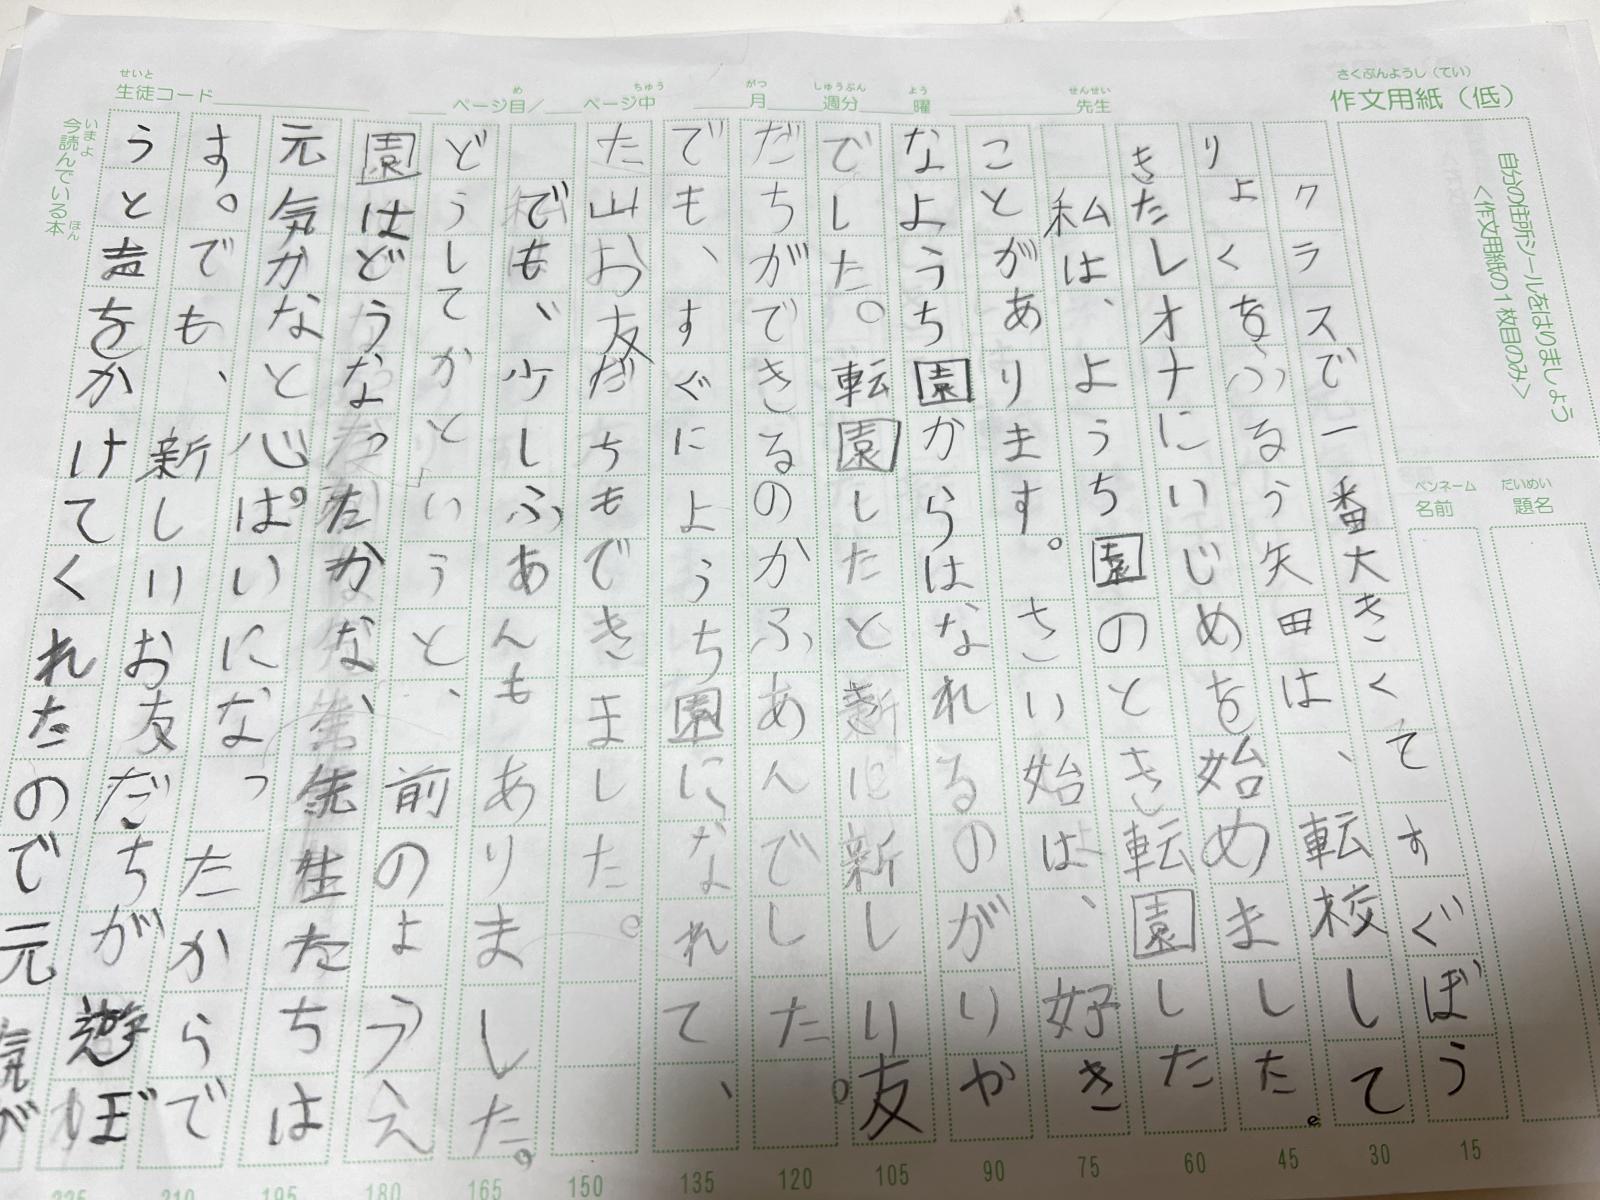 さくぶんようし（てい）
作文用紙（低）
せいと
生徒コード
め
ページ目／
ちゅう
ページ中
がつ
月
しゅうぶん
週分
よう
曜
せんせい
先生
自分の住所シールをはりましょう
＜作文用紙の１枚目のみ＞
だいめい
題名
ペンネーム
名前
クラスで一番大きくてすぐぼう
りょくをふるう矢田は、転校して
きたレオナにいじめを始めました。
私は、ようち園のとき転園した
ことがあります。さいい始は、好き
なようち園からはなれるのがりや
でした。転園したと新しり友
だちができるのかふあんでした。
でも、すぐにようち園になれて、
た山お友だちもできました。
でも、少しふあんもありました。
どうしてかというと、前のようえ
園はどうなったかな、先生たちは
元気かなと心ぱいになったからで
す。でも、新しいお友だちが遊ぼ
うと声をかけてくれたので元気が
いまよ
今読んでいる本
ほん
15
30
45
60
75
90
105
120
135
150
165
180
195
210
225